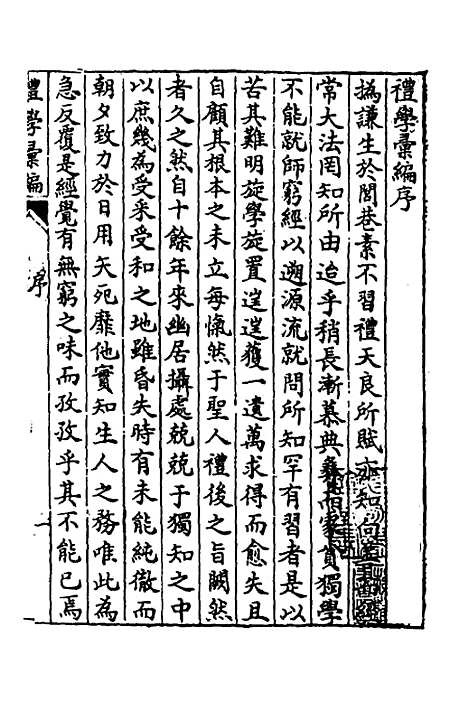 禮學彚編序
撝謙生於閭巷素不習禮天良所賦亦知向
常大法罔知所由迨乎稍長漸慕典彝而家貧獨學
不能就師窮經以遡源流就問所知罕有習者是以
苦其難明旋學旋置遑遑獲一遺萬求得而愈失且
自顧其根本之未立每愾然于聖人禮後之旨闕然
者久之然自十餘年來幽居攝處兢兢于獨知之中
以庶幾為受采受和之地雖昏失時有未能純徹而
朝夕致力於日用矢死靡他實知生人之務唯此為
急反覆是經覺有無窮之味而孜孜乎其不能已焉
禮學彚編
序
一